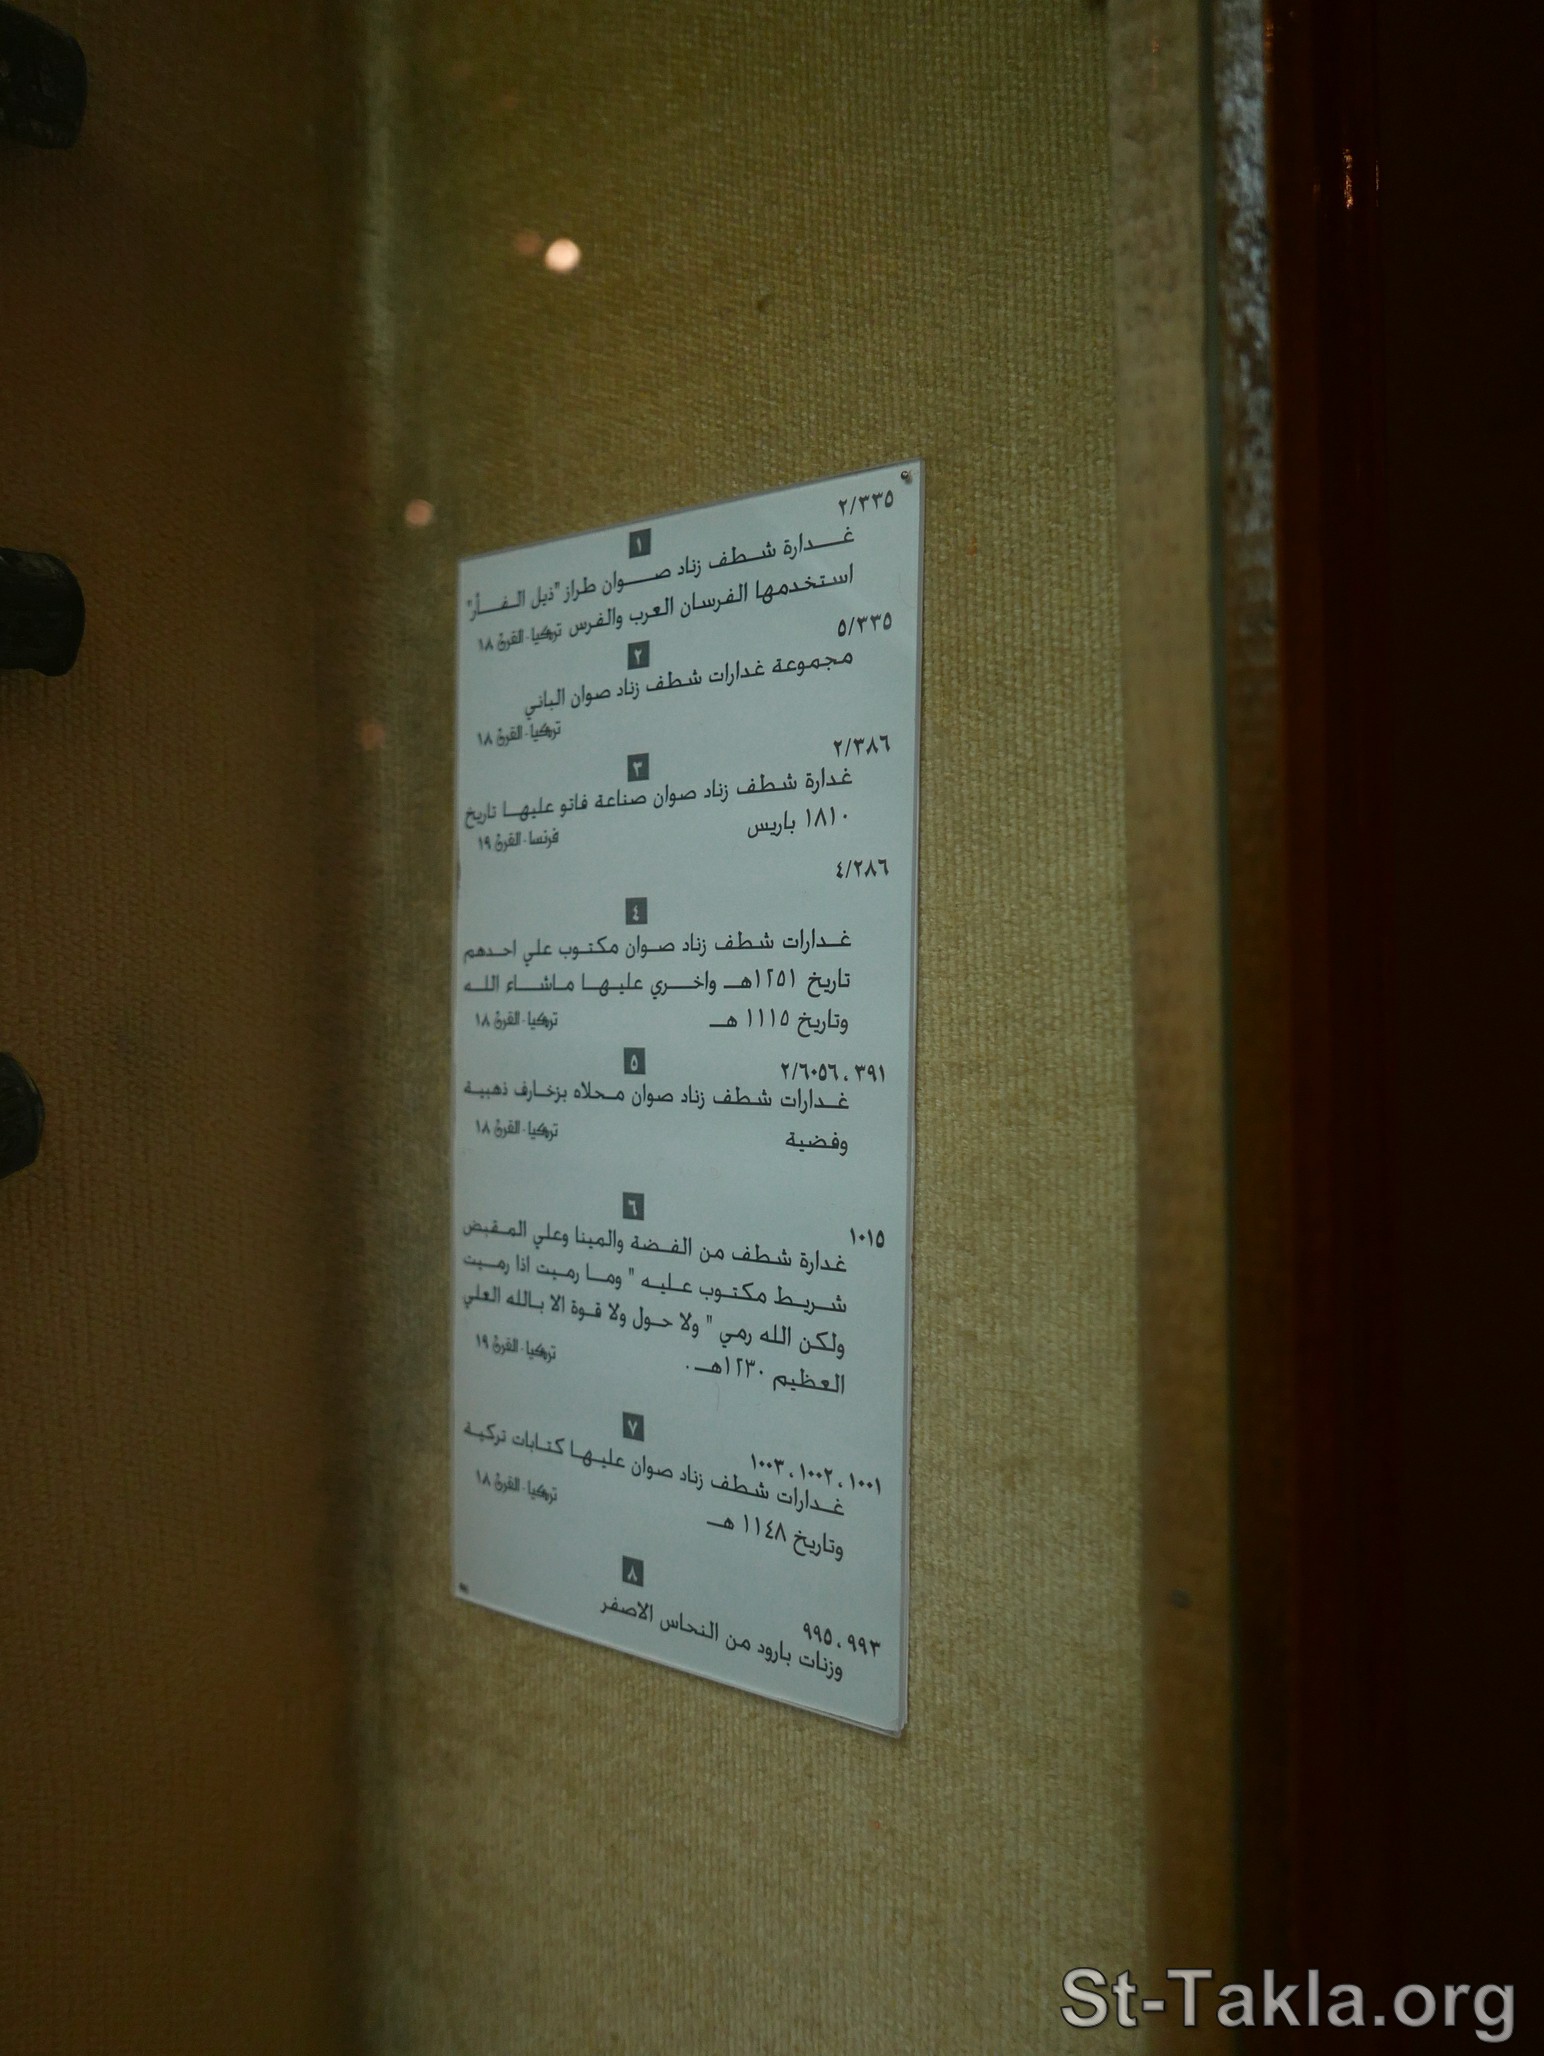 ٢/٣٣٥
١
غدارة شطف زناد صوان طراز "ذيل الفأر"
استخدمها الفرسان العرب والفرس تركيا - القرن ١٨
٥/٣٣٥
٢
مجموعة غدارات شطف زناد صوان الباني
تركيا - القرن ١٨
٢/٣٨٦
٣
غدارة شطف زناد صوان صناعة فاتو عليها تاريخ
١٨١٠ باريس
فرنسا - القرن ١٩
٤/٢٨٦
٤
غدارات شطف زناد صوان مكتوب علي احدهم
تاريخ ١٢٥١هـ واخري عليها ماشاء الله
وتاريخ ١١١٥ هـ تركيا - القرن ١٨
٥
٣٩١ ، ٢/٦٠٥٦
غدارات شطف زناد صوان محلاه بزخارف ذهبية
وفضية تركيا - القرن ١٨
٦
١٠١٥
غدارة شطف من الفضة والمينا وعلي المقبض
شريط مكتوب عليه " وما رميت اذا رميت
ولكن الله رمي " ولا حول ولا قوة الا بالله العلي
العظيم ١٢٣٠هـ . تركيا - القرن ١٩
٧
١٠٠١ ، ١٠٠٢ ، ١٠٠٣
غدارات شطف زناد صوان عليها كتابات تركية
وتاريخ ١١٤٨ هـ تركيا - القرن ١٨
٨
٩٩٣ ، ٩٩٥
وزنات بارود من النحاس الاصفر
St-Takla.org